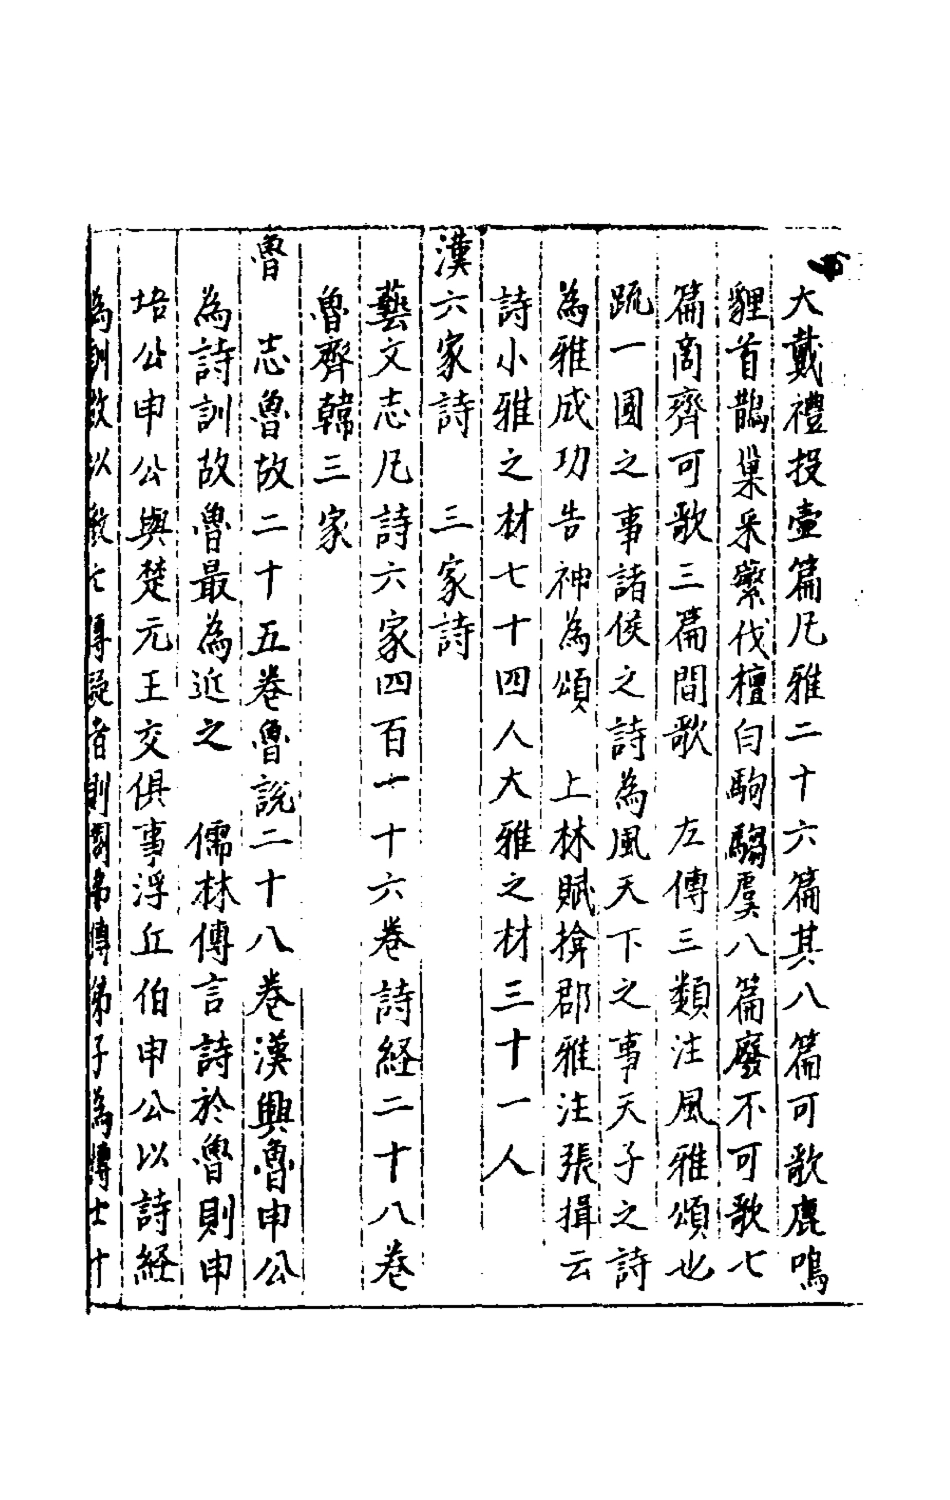 大戴禮投壷篇凡雅二十六篇其八篇可歌鹿鳴
貍首鵲巢采蘩伐檀白駒騶虞八篇廢不可歌七
篇商齊可歌三篇間歌　左傳三類注風雅頌也
䟽一國之事諸侯之詩為風天下之事天子之詩
為雅成功告神為頌　上林賦揜郡雅注張揖云
詩小雅之材七十四人大雅之材三十一人
漢六家詩　三家詩
藝文志凡詩六家四百一十六巻詩経二十八巻
魯齊韓三家
魯　志魯故二十五巻魯説二十八巻漢興魯申公
為詩訓故魯最為近之　儒林傳言詩於魯則申
培公申公與楚元王交俱事浮丘伯申公以詩経
為訓故以教亡傳疑者則闕弗傳弟子為博士十